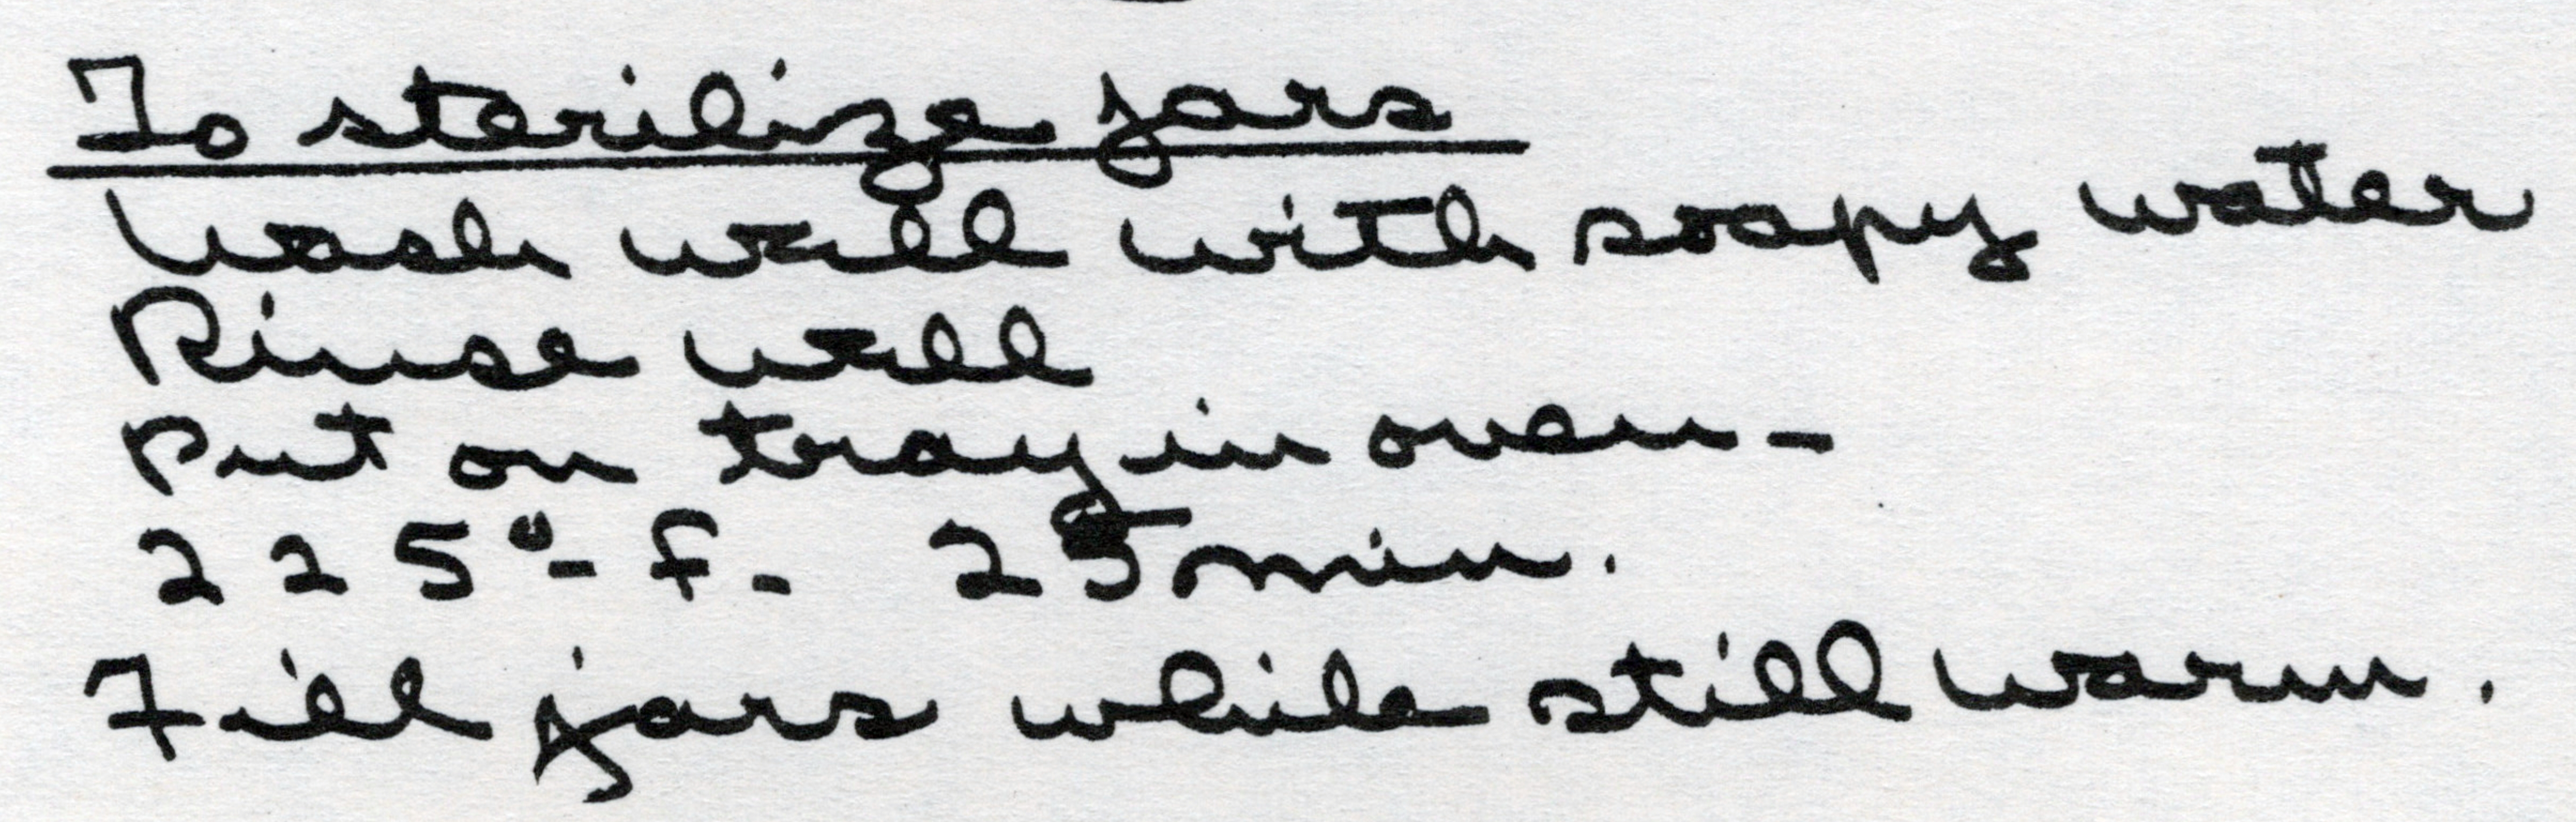 To sterilize jars
Wash well with soapy water
Rinse well
Put on tray in oven-
225°- F- 25 min.
Fill jars while still warm.